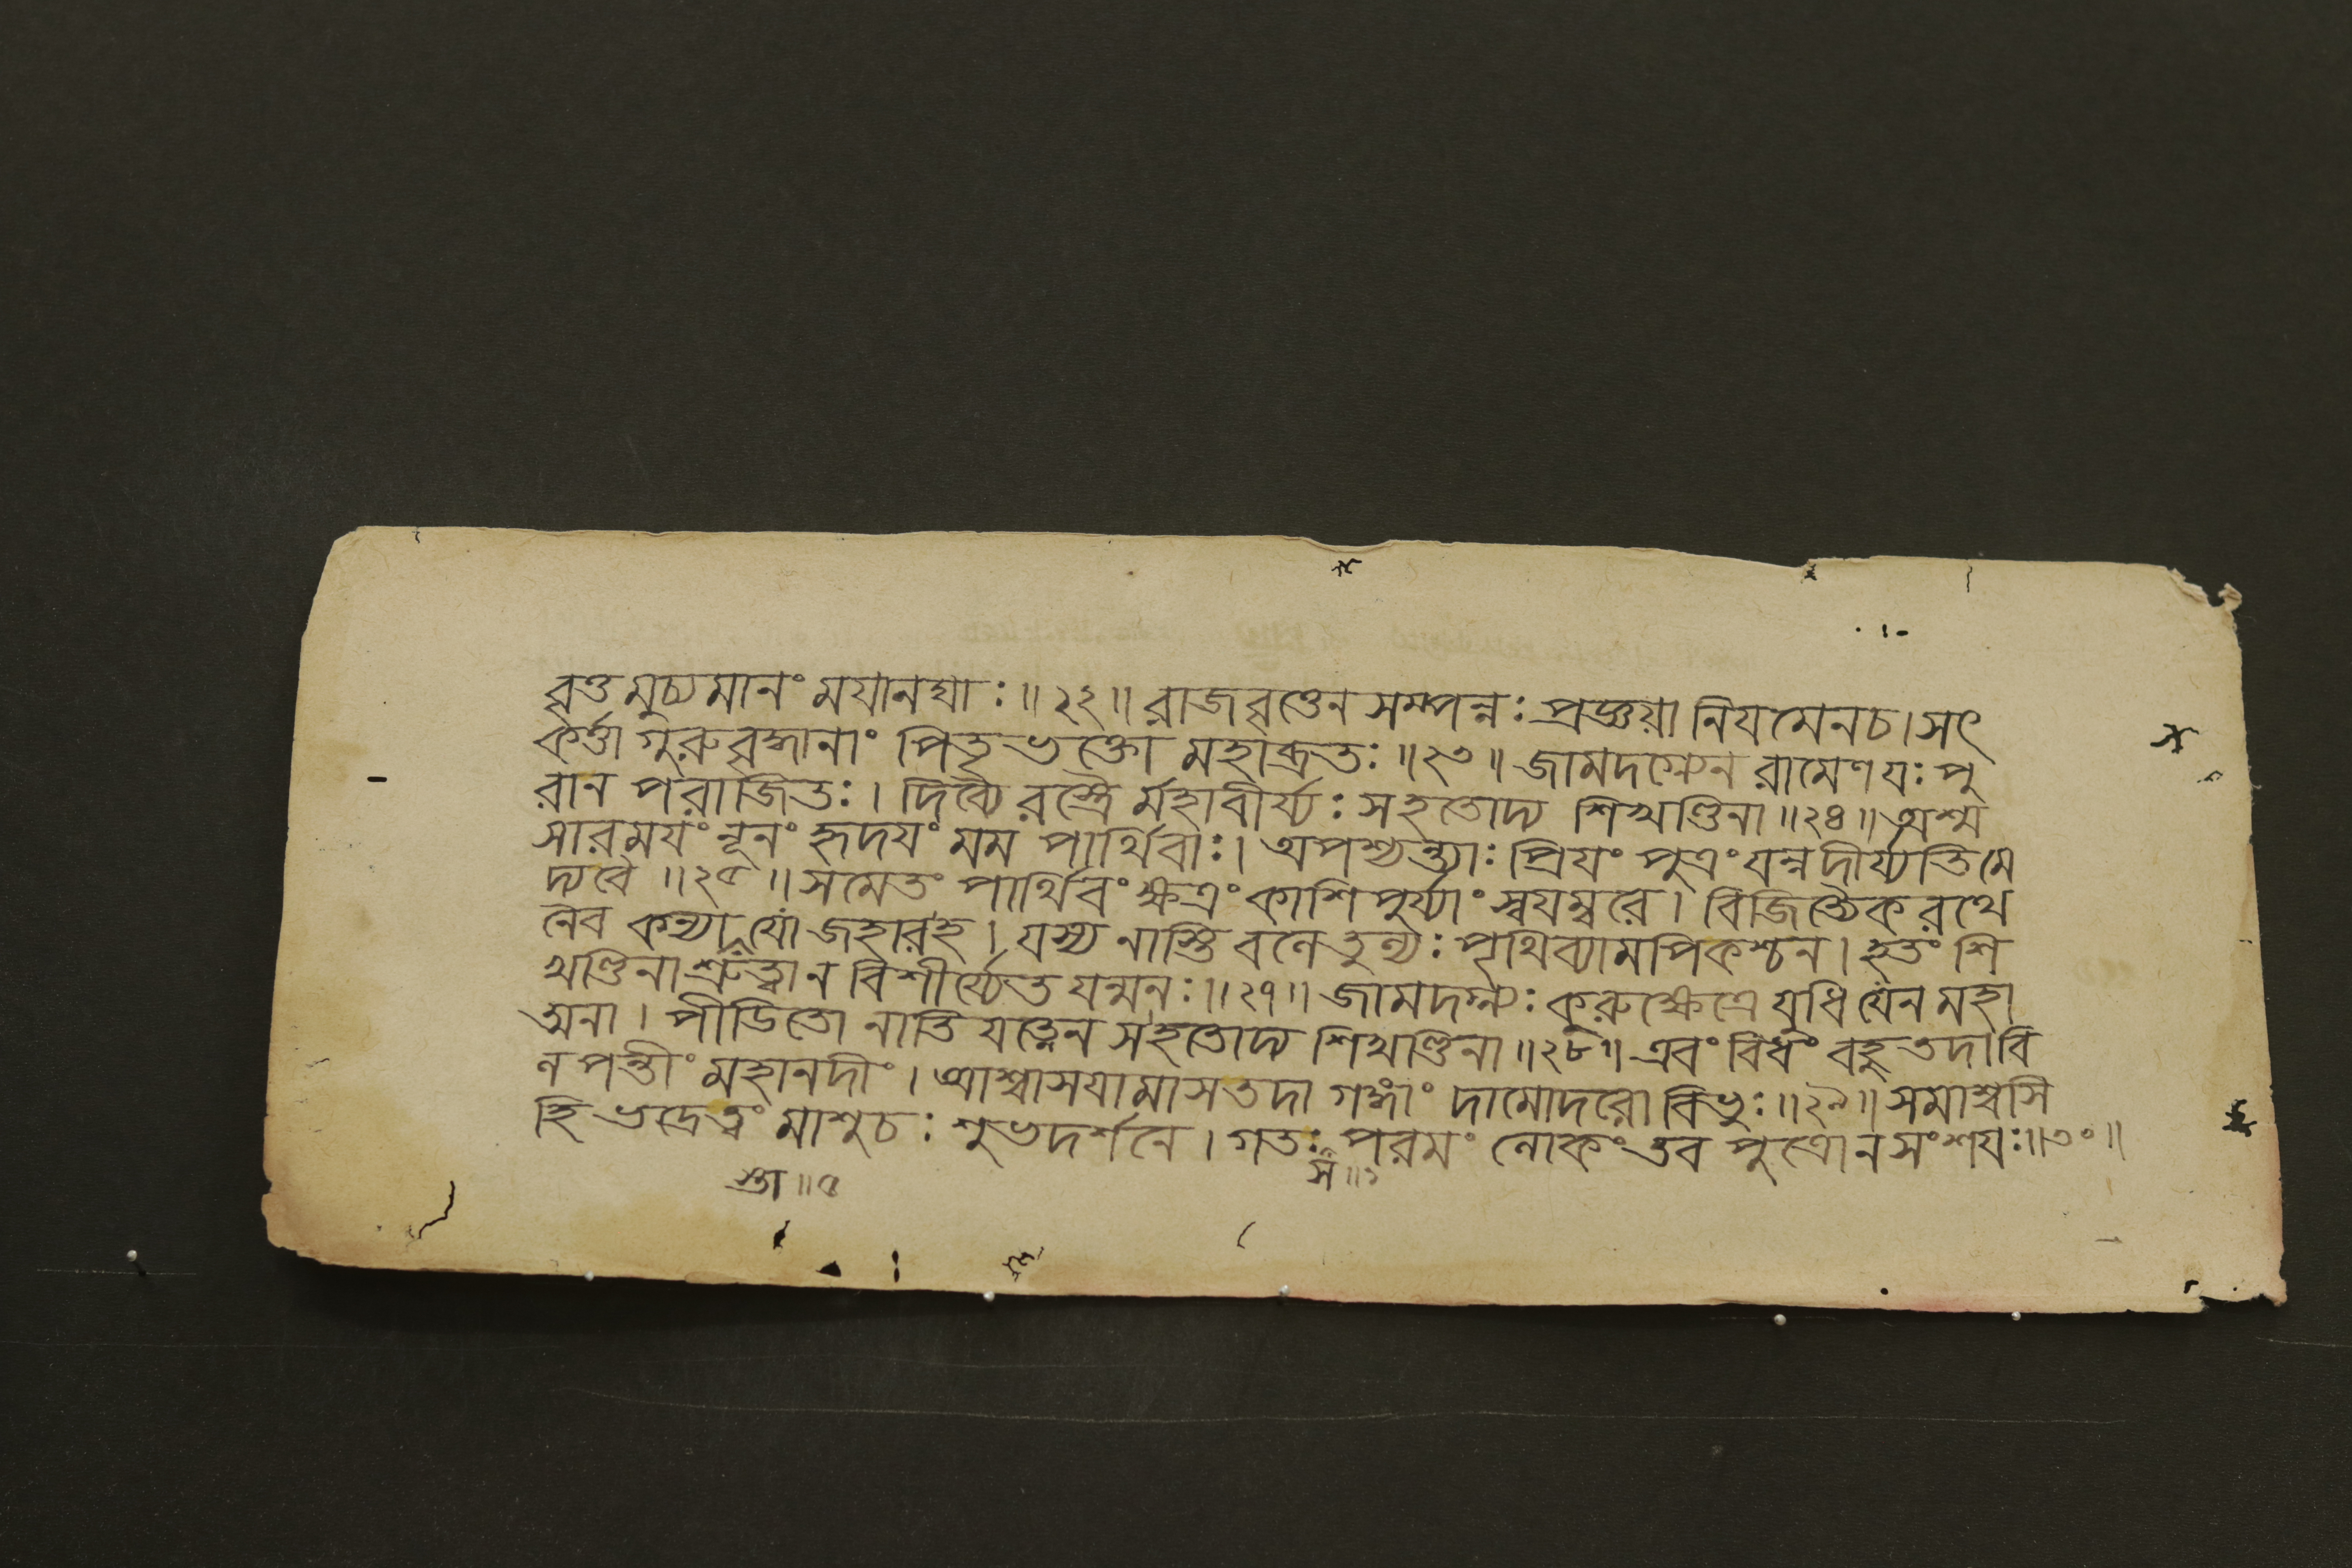 বৃত্তমুচ্যমানং ময়ানঘাঃ ॥২২॥ রাজবৃত্তেন সম্পন্নঃ প্রজ্ঞয়া নিয়মেনচ। সৎ
কর্ত্তা গুরুবৃদ্ধানাং পিতৃভক্তো মহাব্রতঃ ॥২৩॥ জামদগ্ন্যেন রামেণ যঃ পু
রান পরাজিতঃ। দিব্যৈরস্ত্রৈর্মহাবীর্য্যঃ সহতোদ্য শিখণ্ডিনা ॥২৪॥ অশ্ম
সারময়ং নূনং হৃদয়ং মম পার্থিবাঃ। অপশ্যন্ত্যাঃ প্রিয়ং পুত্রং যন্ন দীর্য্যতি মে
দ্যবৈ ॥২৫॥ সমেতং পার্থিবং ক্ষত্রং কাশিপুর্য্যাং স্বয়ম্বরে। বিজিত্যৈকরথে
নৈব কন্যা যো জহারহ। যস্য নাস্তি বলে তুল্যঃ পৃথিব্যামপিকশ্চন। হতং শি
খণ্ডিনা শ্রুত্বা ন বিশীর্য্যেত যন্মনঃ ॥২৭॥ জামদগ্ন্যঃ কুরুক্ষেত্রে যুধি যেন মহা
ত্মনা। পীড়িতো নাতি যত্নেন সহতোদ্য শিখণ্ডিনা ॥২৮॥ এবং বিধং বহু তদা বি
লপন্তীং মহানদীং। আশ্বাসয়ামাস তদা গঙ্গাং দামোদরো বিভুঃ ॥২৯॥ সমাশ্বসি
হি ভদ্রেত্বং মাশুচঃ শুভদর্শনে। গতঃ পরমং লোকং তব পুত্রো ন সংশয়ঃ ॥৩০॥
স্তা ॥৫ স ॥১